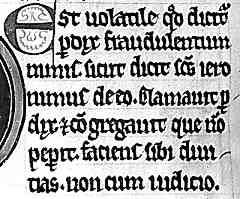 St uolatile qđ dict᷑
ꝑdix fraudulentum
nimis sicut dicit sc̄s iero
nimus de eo. Clamauit ꝑ
dix ⁊ cōgregauit que nō
peꝑit. faciens sibi diui
tias. non cum iudicio.